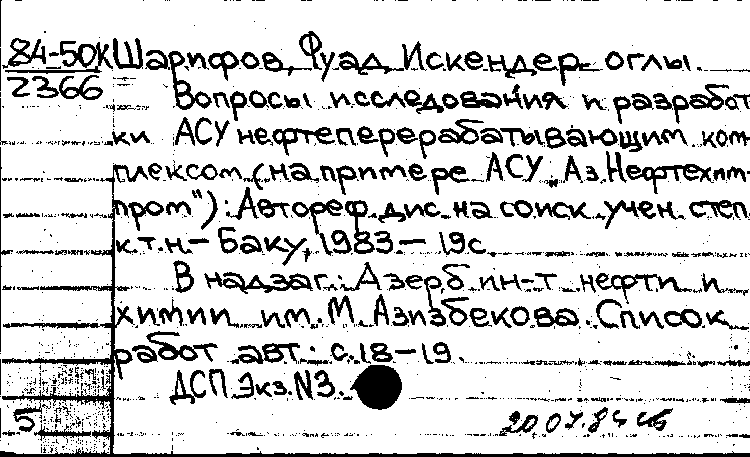 84-50К Шарифов, Фуад Искендер оглы.
2366
Вопросы исследования и разработ
ки АСУ нефтеперерабатывающим ком
плексом (на примере АСУ „Аз.Нефтехим-
пром"): Автореф. дис. на соиск. учен. степ
к.т.н.- Баку, 1983.- 19с.
В надзаг.: Азерб. ин-т нефти и
химии им. М. Азизбекова. Список
работ авт.: с.18-19.
ДСП. Экз.N3.
5
20.07.84